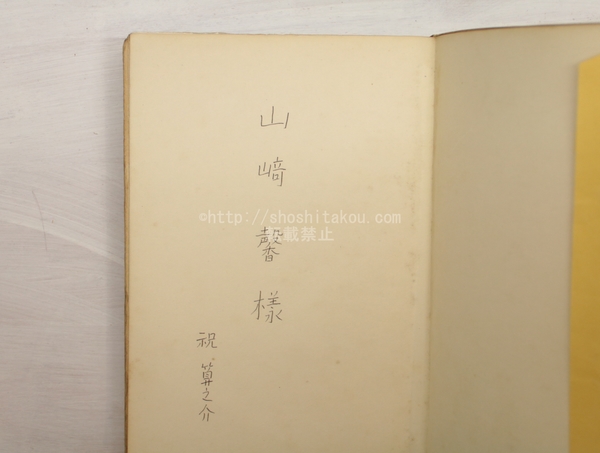 山﨑馨様
祝算之介
©http://shoshitakou.com/
転載禁止